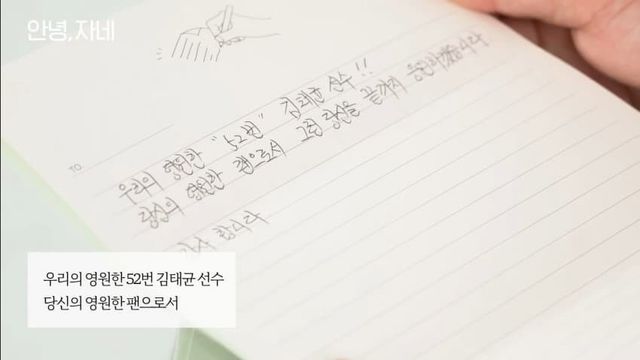 안녕, 자네
TO
우리의 영원한 "52번" 김태균 선수!!
당신의 영원한 팬으로서 그런 당신을 끝까지 응원하겠습니다
감사 합니다
우리의 영원한 52번 김태균 선수
당신의 영원한 팬으로서